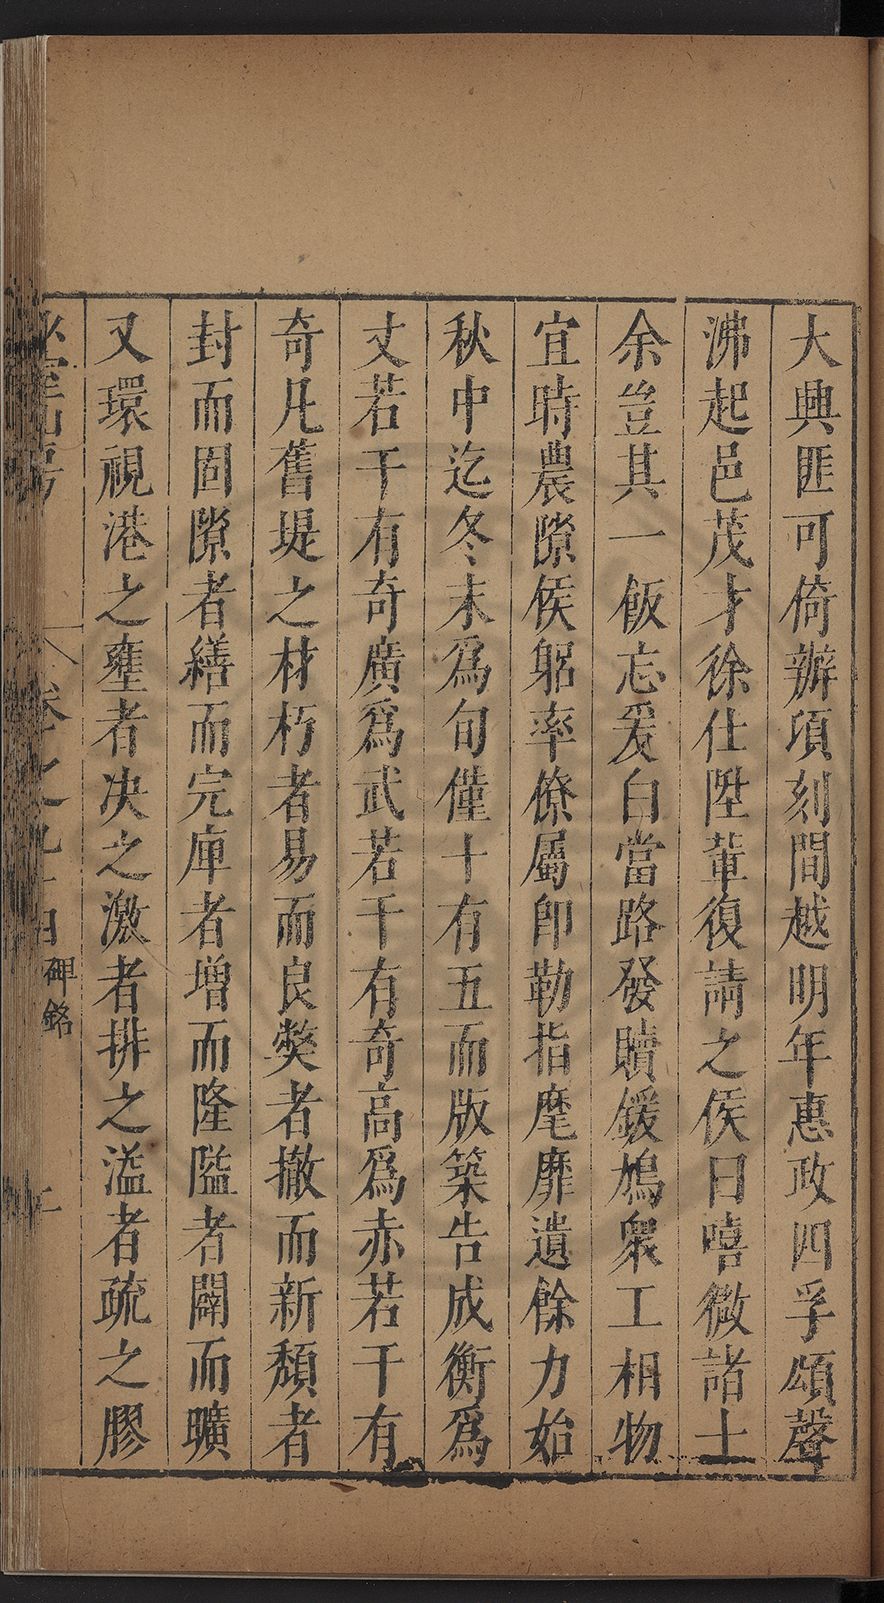 大興匪可倚辦項刻間越明年惠政四孚頌聲
沸起邑茂才徐仕陞輩復請之侯曰嘻微諸士
余豈其一飯忘爰白當路發贖鍰鳩衆工相物
宜時農隙侯躬率僚屬即勒指麾靡遺餘力始
秋中迄冬末爲旬僅十有五而版築告成衡爲
丈若干有奇廣爲武若干有奇高爲赤若干有
奇凡舊堤之材朽者易而良獘者撤而新頹者
封而固隙者繕而完庳者增而隆隘者闢而曠
又環視港之壅者决之激者排之溢者疏之膠
卷之九十四 碑銘